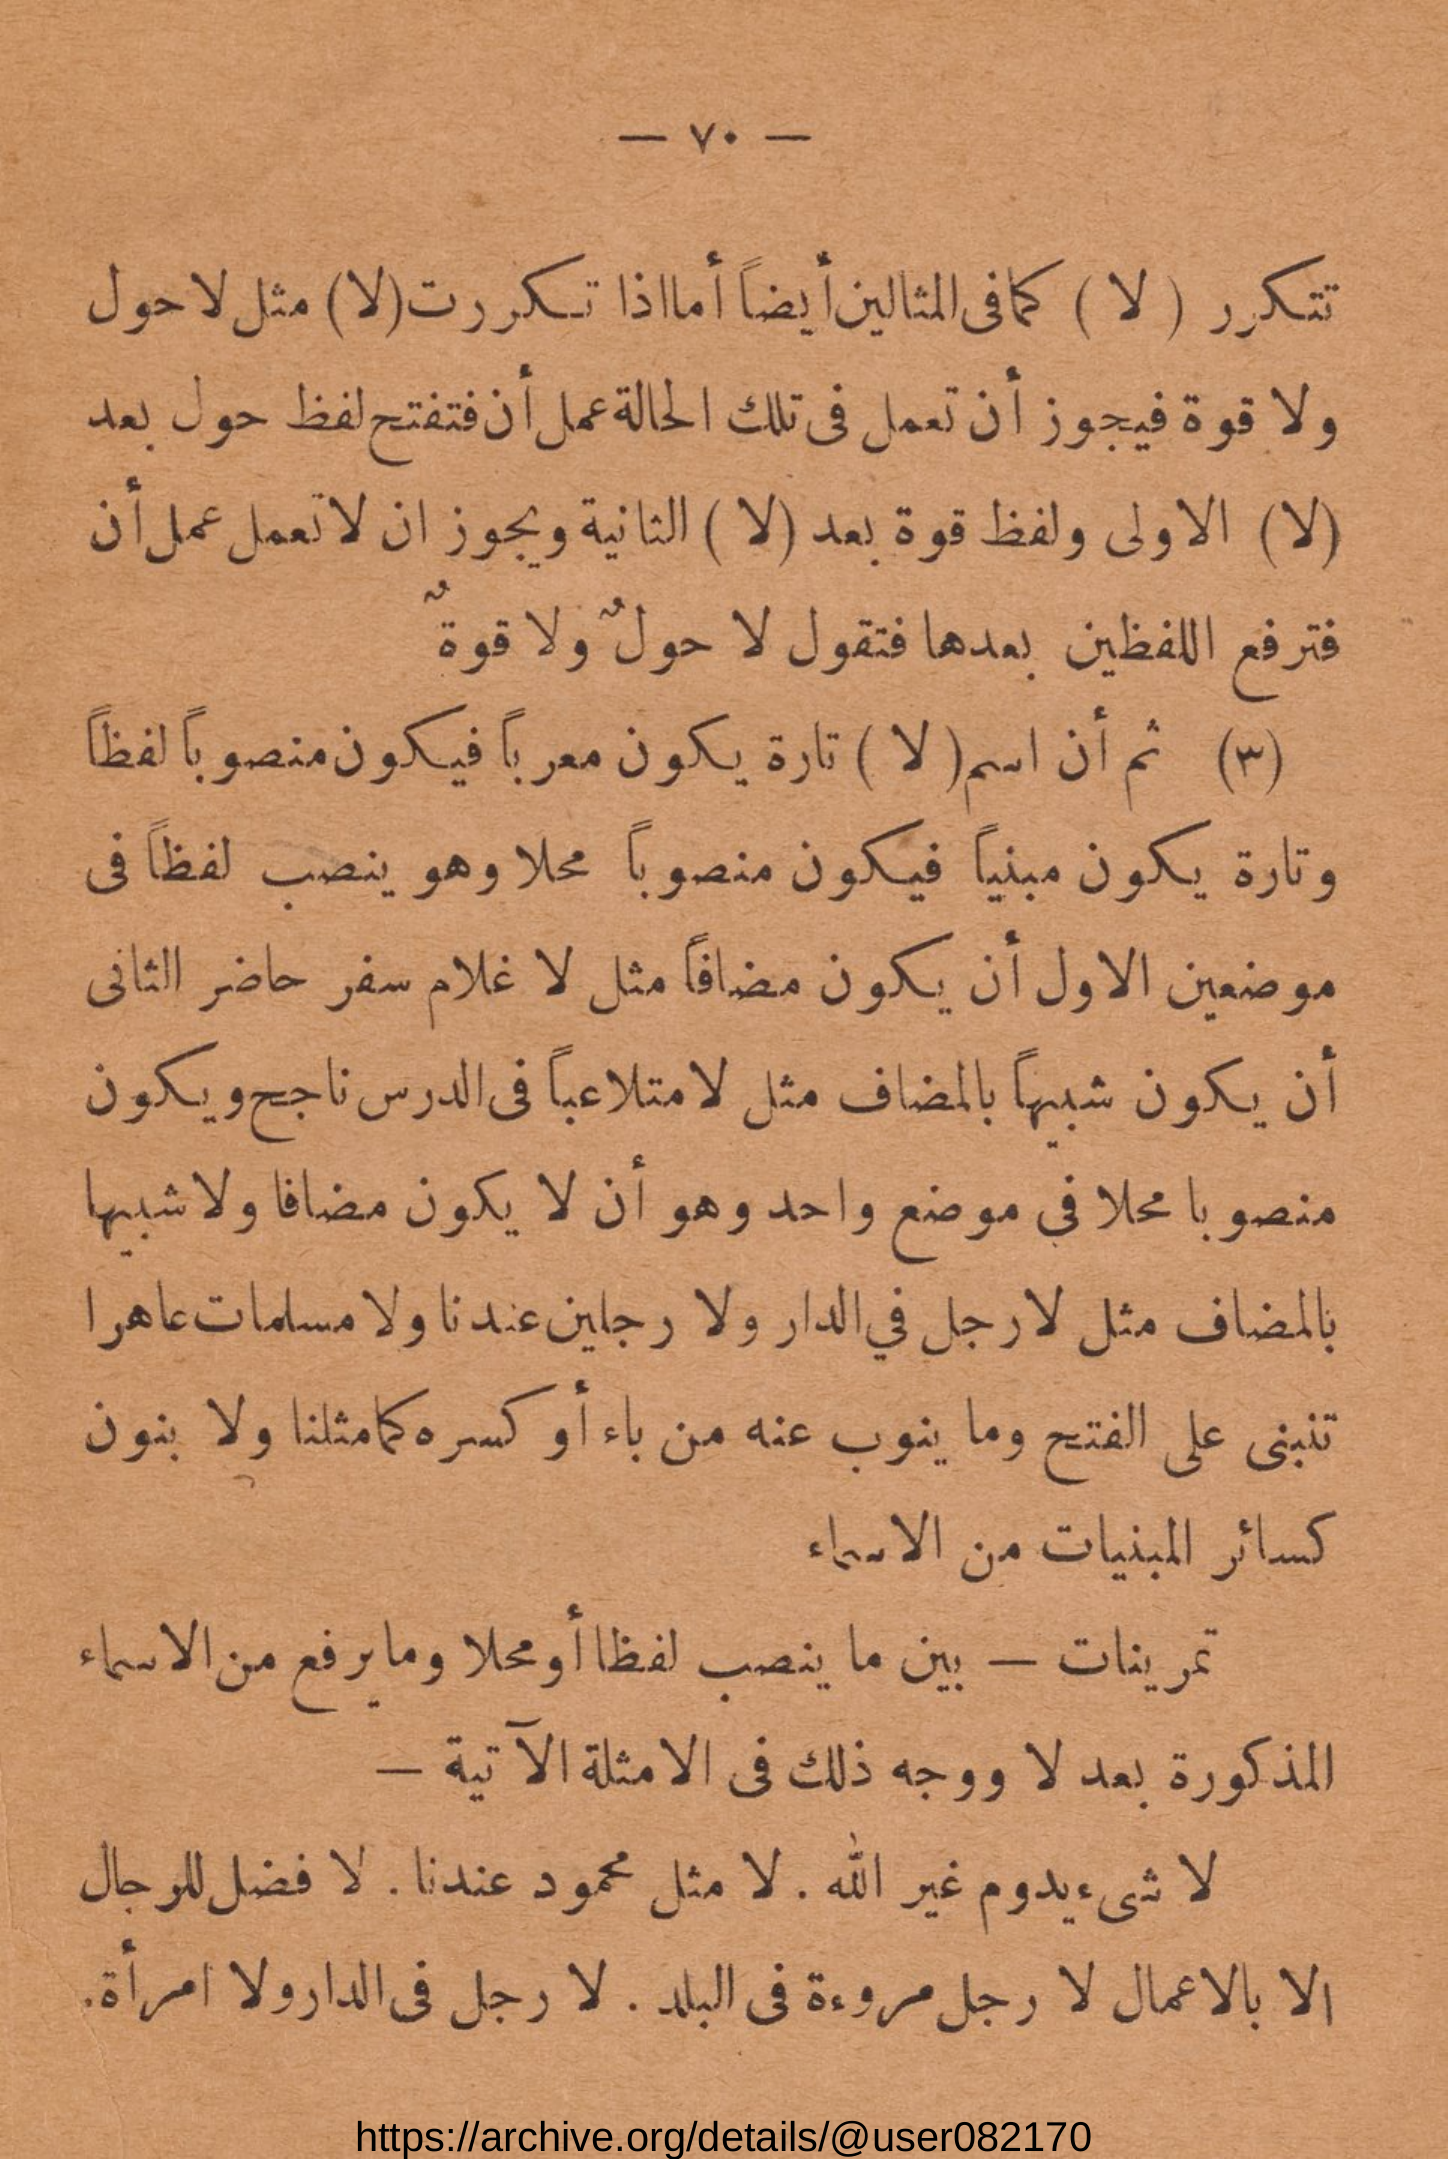 — ٧٠ —
تتكرر ( لا ) كما فى المثالين أيضاً أما اذا تكررت (لا) مثل لا حول
ولا قوة فيجوز أن تعمل فى تلك الحالة عمل أن فتفتح لفظ حول بعد
(لا) الاولى ولفظ قوة بعد (لا) الثانية ويجوز ان لا تعمل عمل أن
فترفع اللفظين بعدها فتقول لا حولٌ ولا قوةٌ
(٣) ثم أن اسم ( لا ) تارة يكون معرباً فيكون منصوباً لفظاً
وتارة يكون مبنياً فيكون منصوباً محلا وهو ينصب لفظاً فى
موضعين الاول أن يكون مضافاً مثل لا غلام سفر حاضر الثانى
أن يكون شبيهاً بالمضاف مثل لا متلاعباً فى الدرس ناجح ويكون
منصوبا محلا في موضع واحد وهو أن لا يكون مضافا ولا شبيها
بالمضاف مثل لا رجل في الدار ولا رجلين عندنا ولا مسلمات عاهرا
تنبنى على الفتح وما ينوب عنه من باء أو كسره كما مثلنا ولا بنون
كسائر المبنيات من الاسماء
تمرينات — بين ما ينصب لفظا أو محلا وما يرفع من الاسماء
المذكورة بعد لا ووجه ذلك فى الامثلة الآتية —
لا شىء يدوم غير الله . لا مثل محمود عندنا . لا فضل للرجال
الا بالاعمال لا رجل مروءة فى البلد . لا رجل فى الدار ولا امرأة.
https://archive.org/details/@user082170